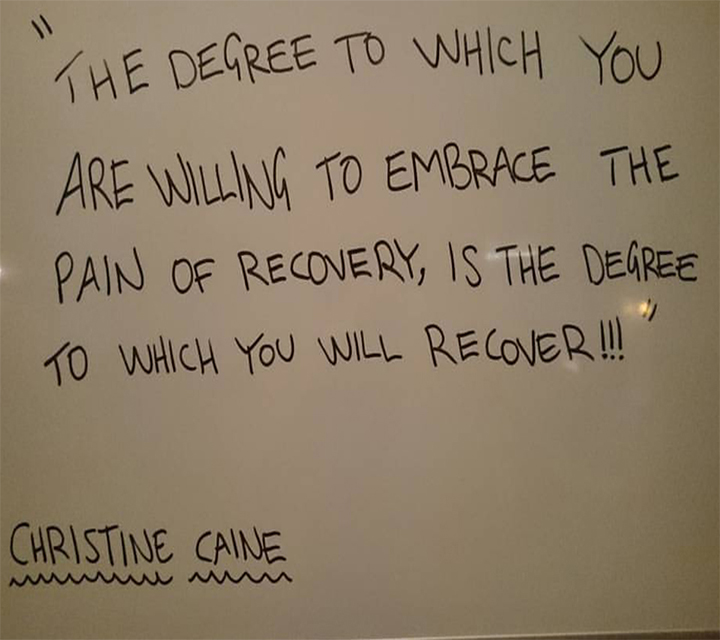 "THE DEGREE TO WHICH YOU
ARE WILLING TO EMBRACE THE
PAIN OF RECOVERY, IS THE DEGREE
TO WHICH YOU WILL RECOVER!!!"
CHRISTINE CAINE